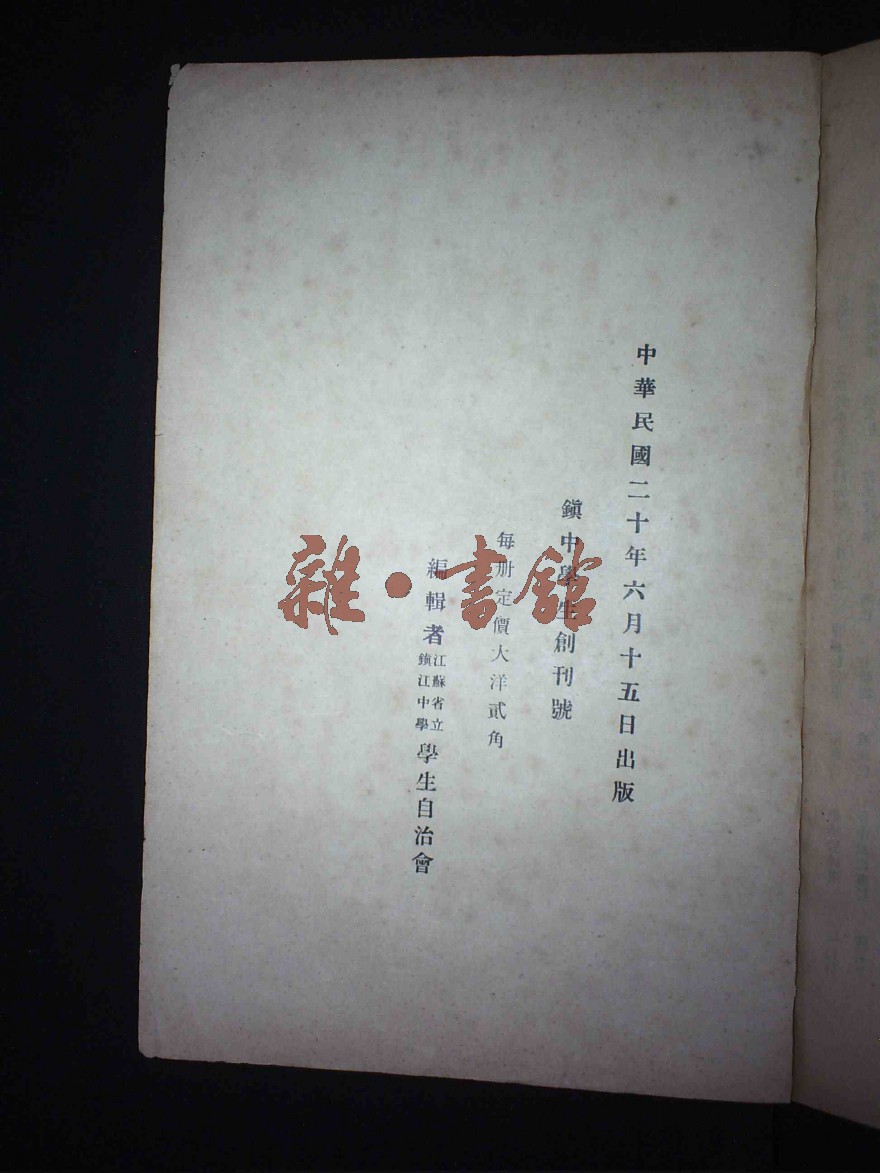 中華民國二十年六月十五日出版
鎭中學生創刊號
每册定價大洋貳角
編輯者
江蘇省立
鎭江中學
學生自治會
雜·書館